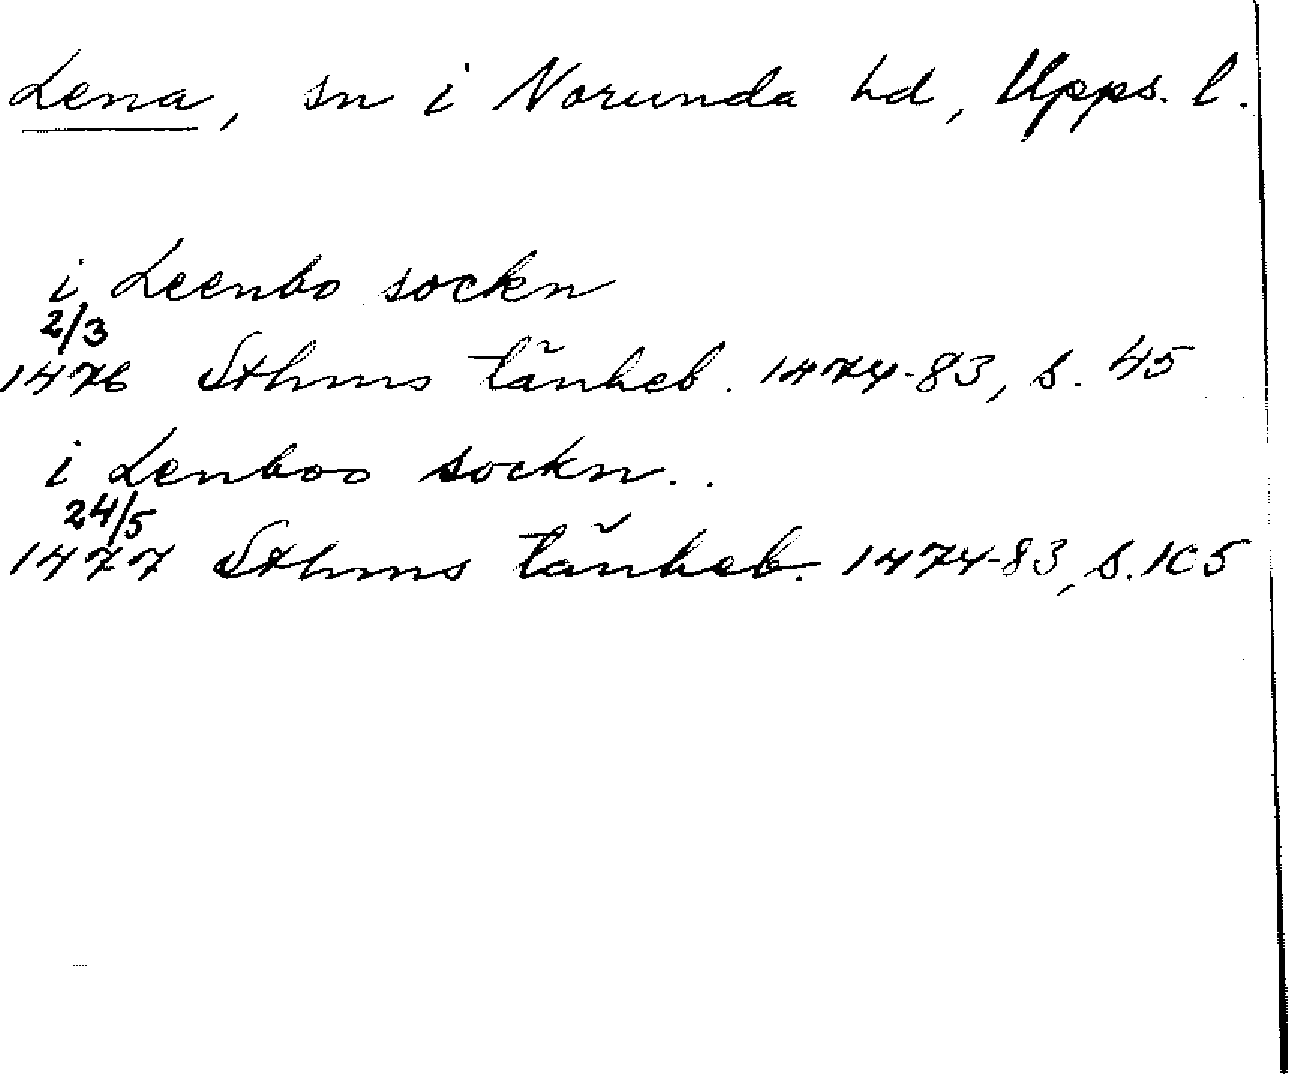 Lena, sn i Norunda hd, Upps. l.
i Leenbo sockn
2/3
1476 Sthms tänkeb. 1474-83, s. 45
i Lenboo sockn..
24/5
1477 Sthms tänkeb. 1474-83, s. 105